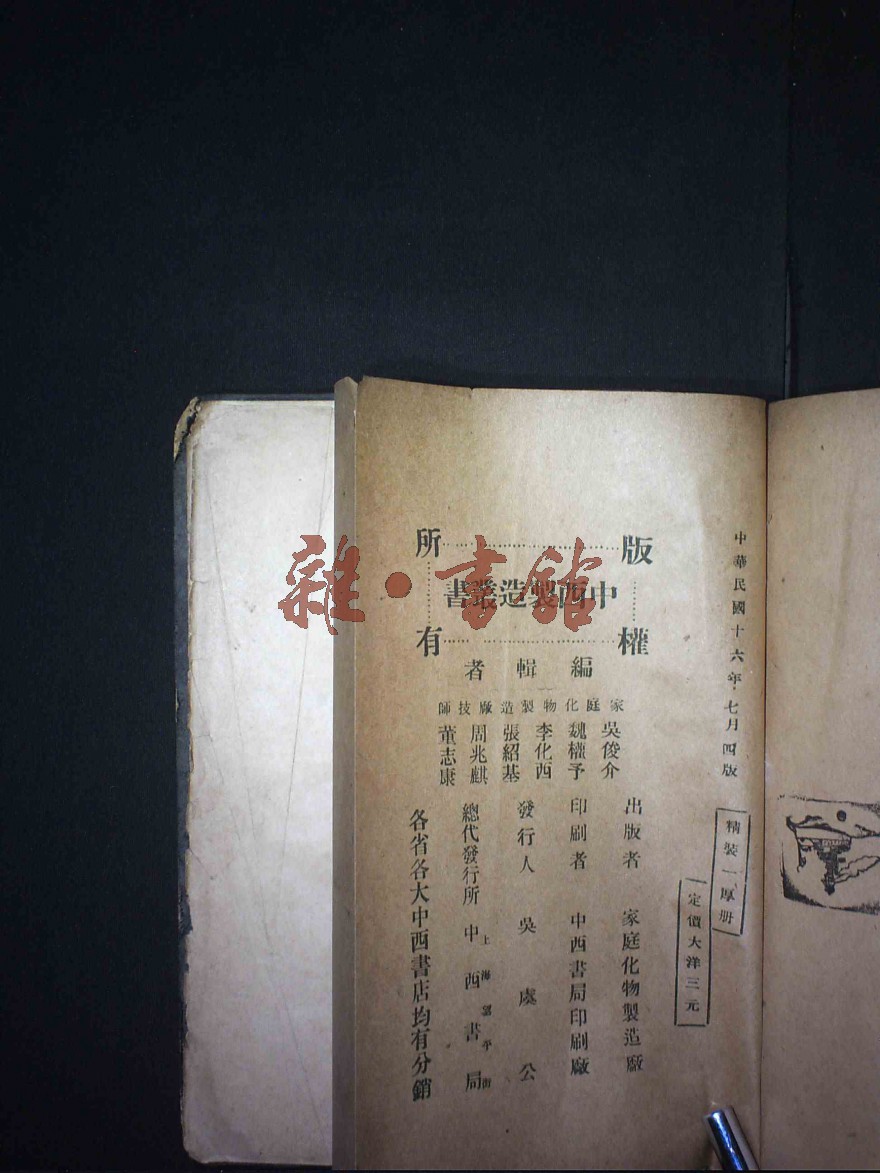 中華民國十六年·七月四版
精裝一厚册
定價大洋三元
版權所有
中西製造叢書
編輯者
家庭化物製造廠技師
吳俊介
魏權予
李化西
張紹基
周兆麒
董志康
出版者 家庭化物製造廠
印刷者 中西書局印刷廠
發行人 吳虞公
總代發行所 上海望平街 中西書局
各省各大中西書店均有分銷
雜·書館